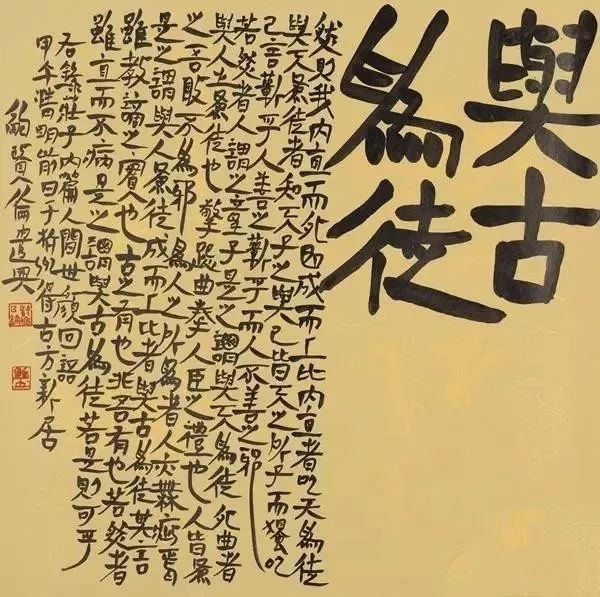 與古
為徒
然則我內直而外曲成而上比內直者以天為徒
與天為徒者知天子之與己皆天之所子而獨以
己言蘄乎人善之蘄乎而人不善之邪
若然者人謂之童子是之謂與天為徒外曲者
與人之為徒也擎跽曲拳人臣之禮也人皆為
之吾敢不為邪為人之所為者人亦無疵焉
是之謂與人為徒成而上比者與古為徒其言
雖教謫之實也古之有也非吾有也若然者
雖直而不病是之謂與古為徒若是則可乎
右錄莊子內篇人間世顏回語
甲午清明前日於杭州古方新居
鮑賢倫